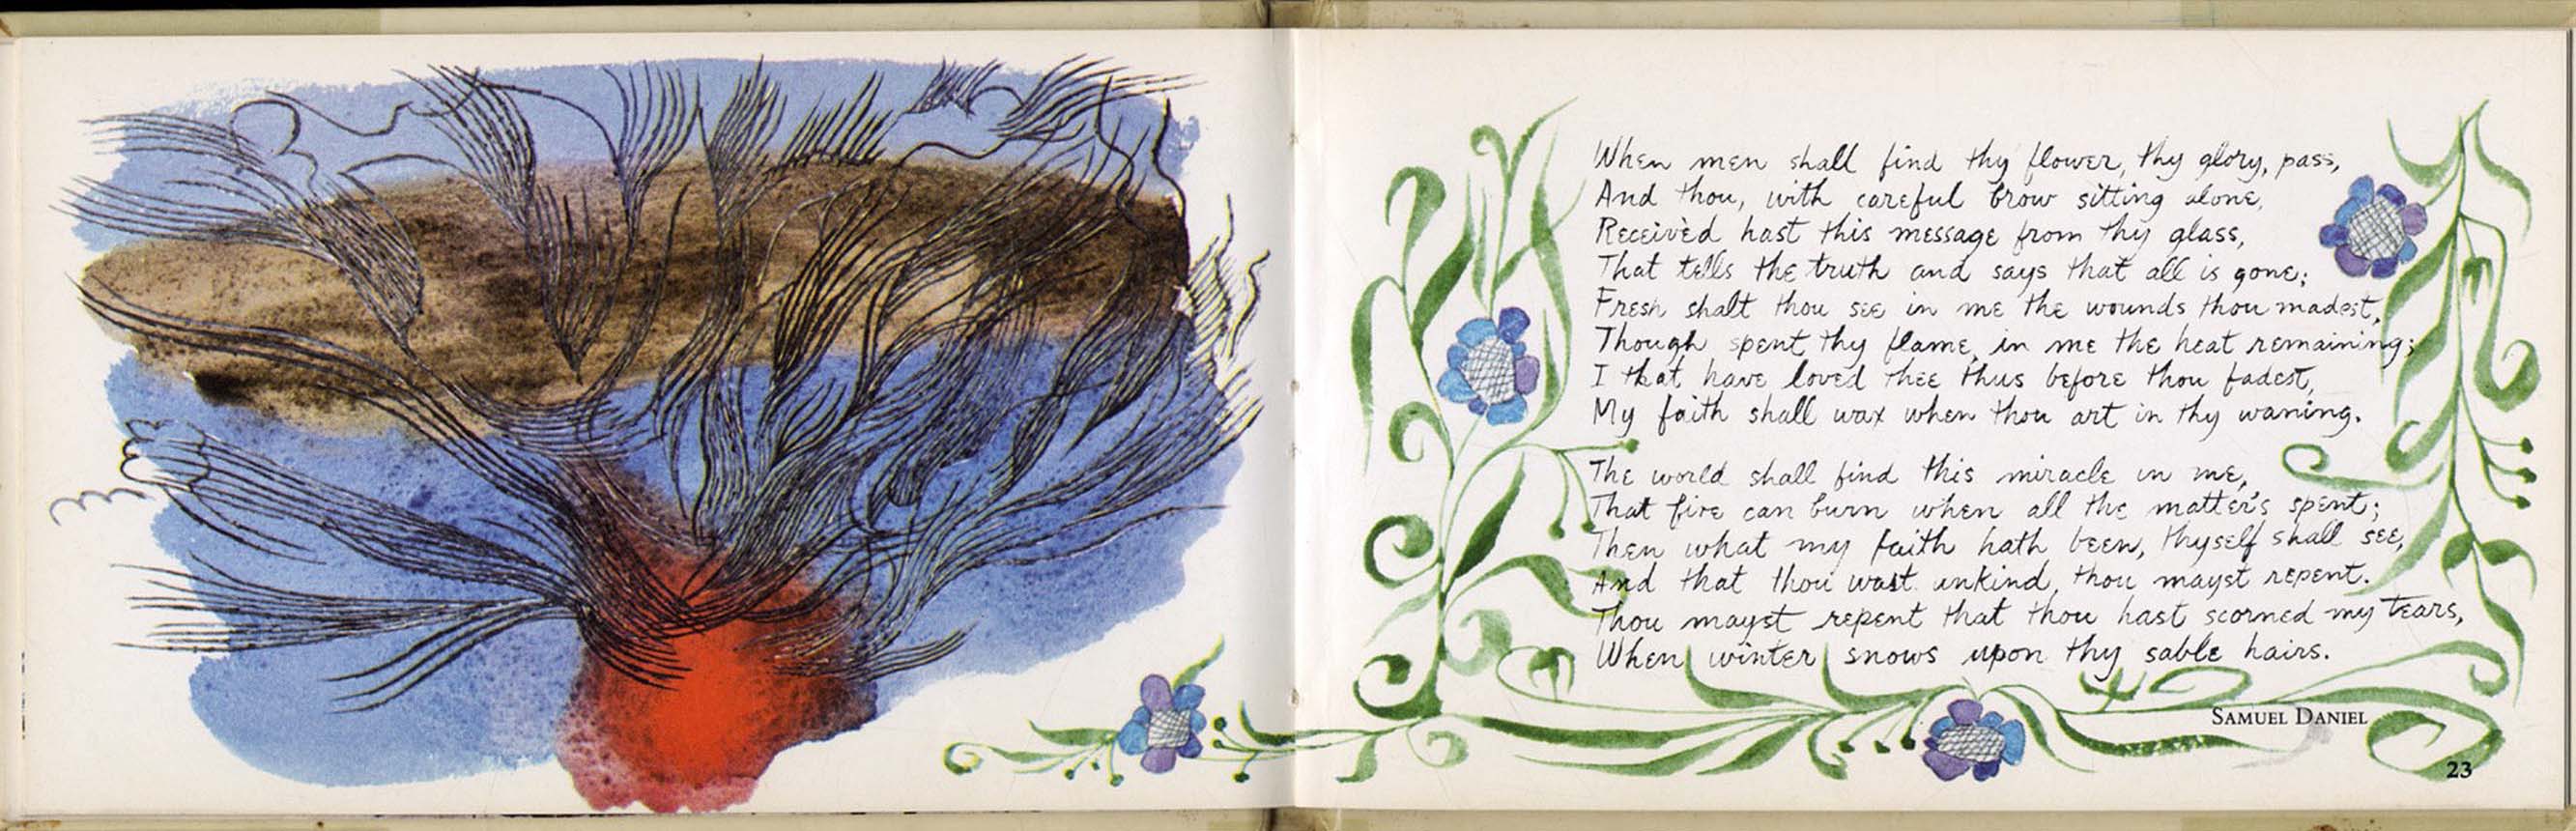 When men shall find thy flower, thy glory, pass,
And thou, with careful brow sitting alone,
Receivèd hast this message from thy glass,
That tells the truth and says that all is gone;
Fresh shalt thou see in me the wounds thou madest,
Though spent thy flame, in me the heat remaining;
I that have loved thee thus before thou fadest,
My faith shall wax when thou art in thy waning.
The world shall find this miracle in me,
That fire can burn when all the matter's spent;
Then what my faith hath been, thyself shall see,
And that thou wast unkind, thou mayst repent.
Thou mayst repent that thou hast scorned my tears,
When winter snows upon thy sable hairs.
SAMUEL DANIEL
23